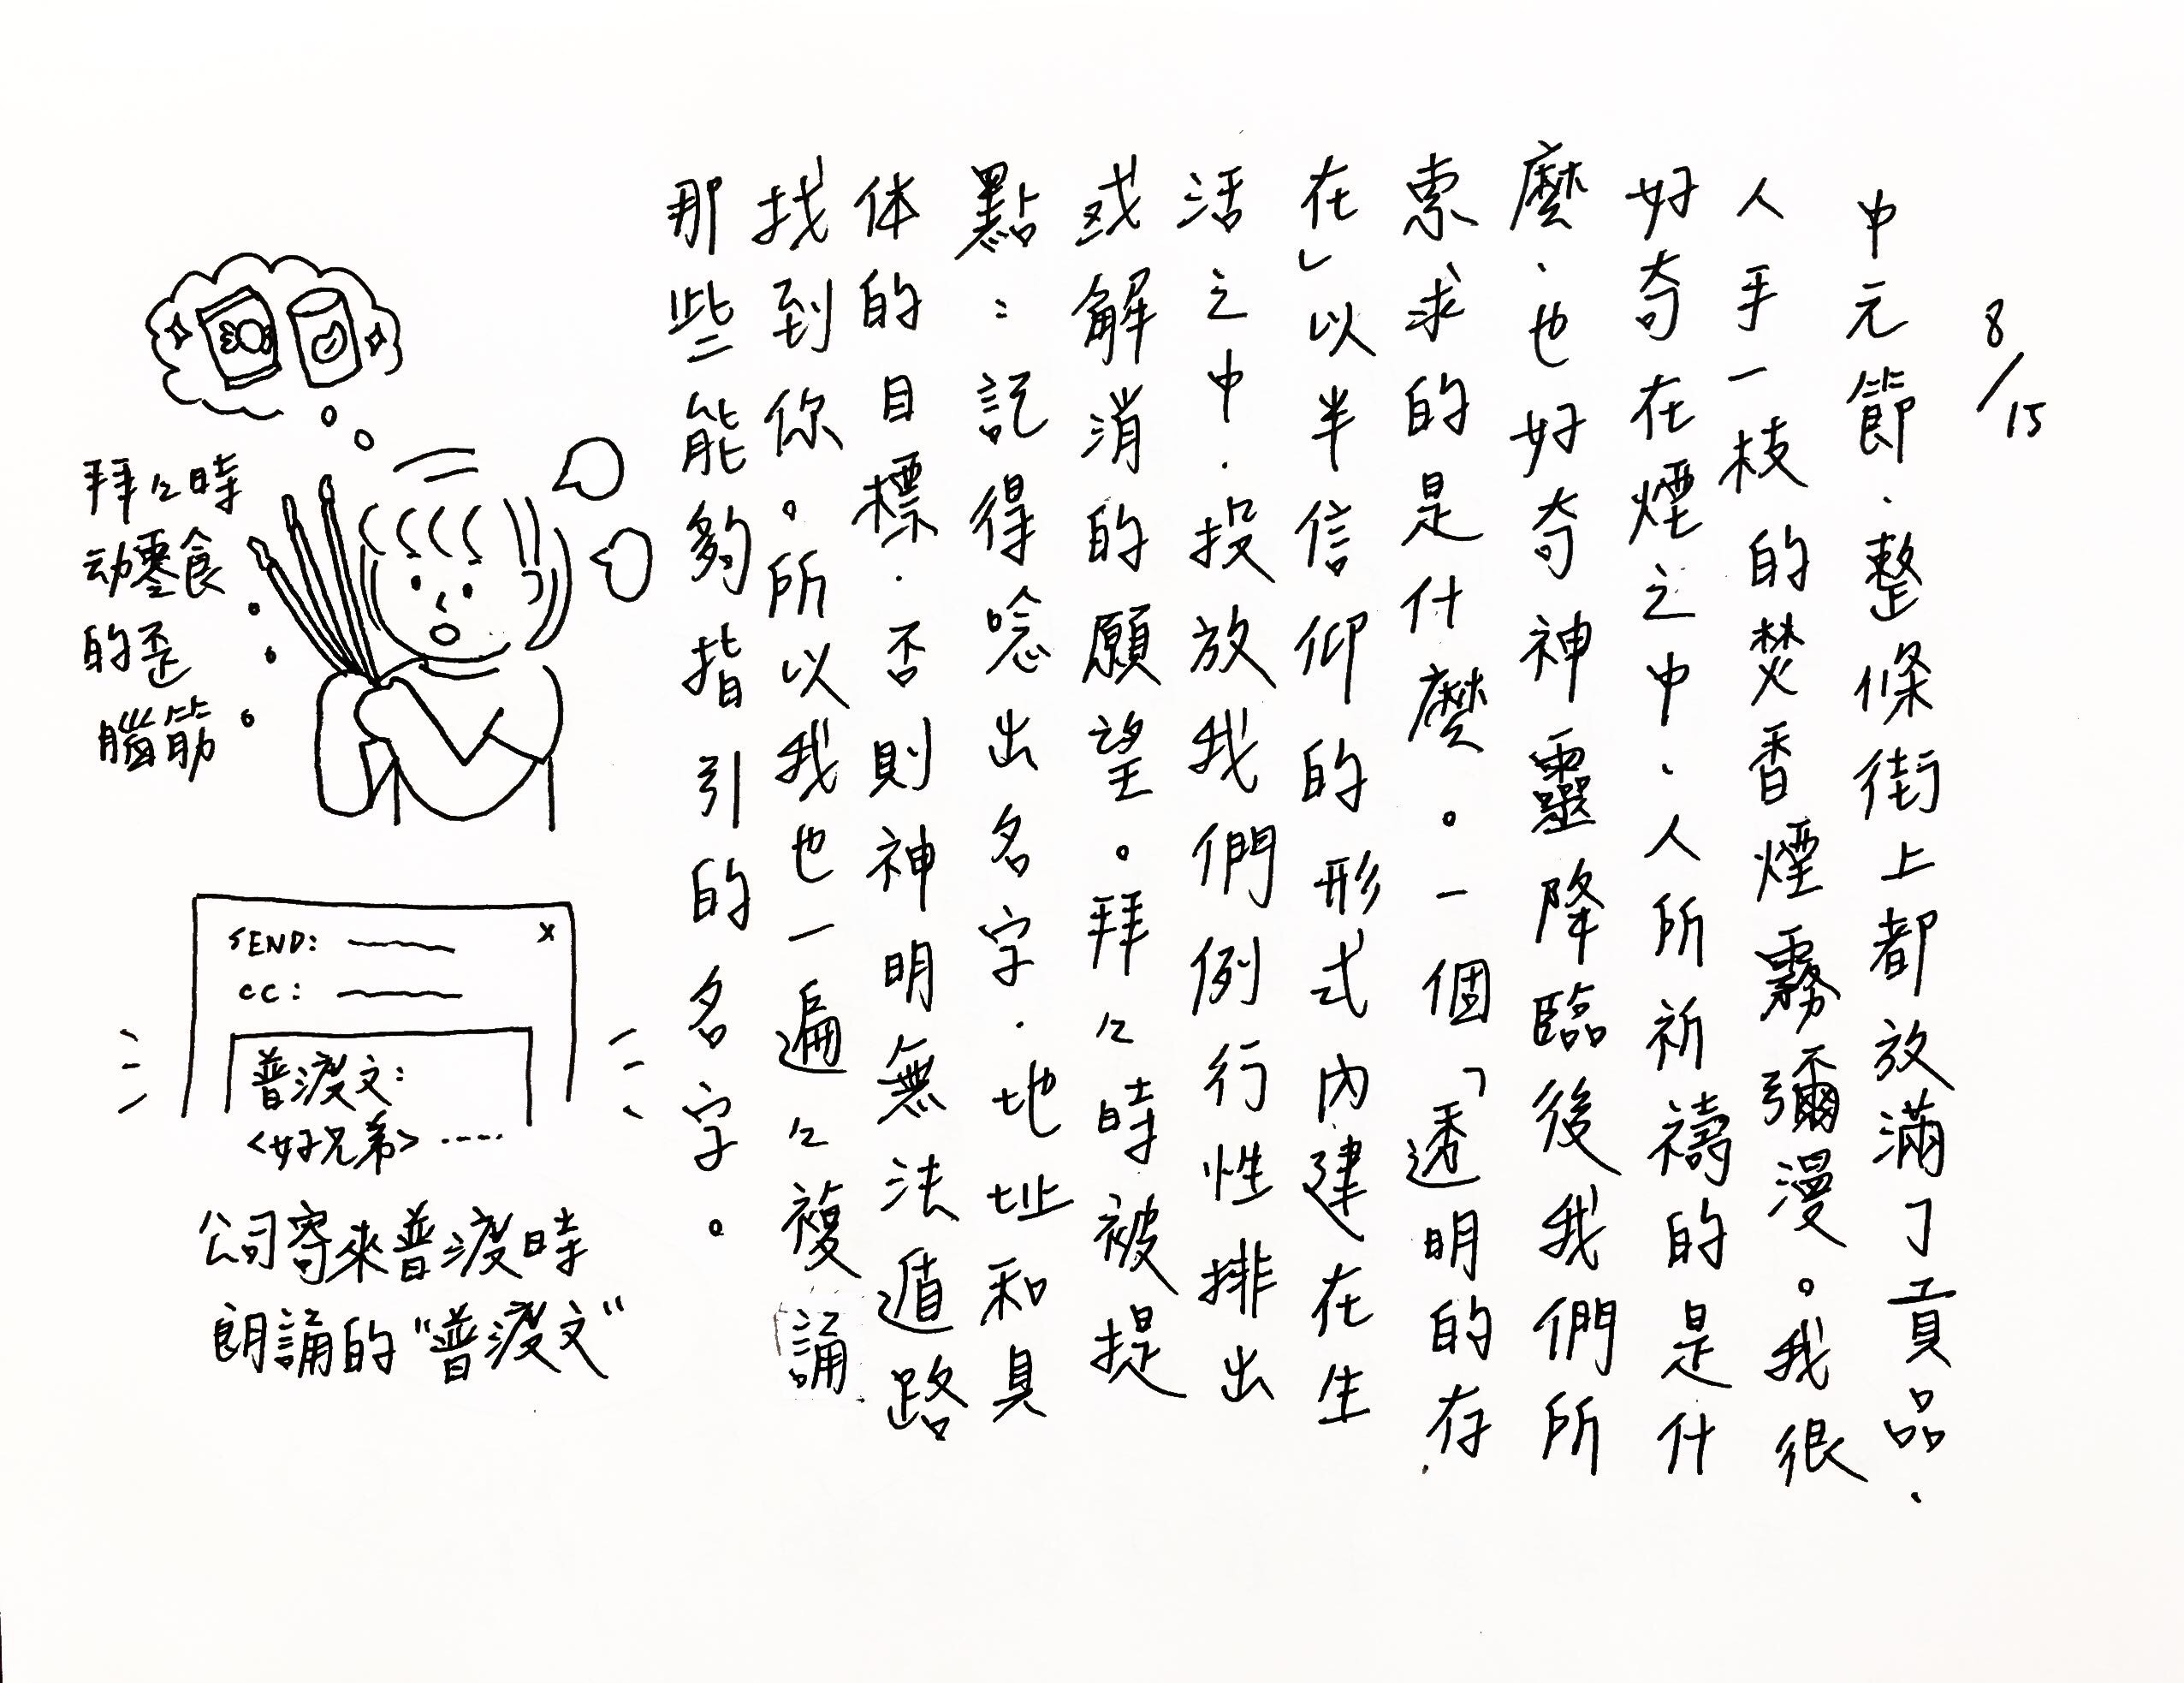 8/15
中元節．整條街上都放滿了貢品．
人手一枝的焚香煙霧彌漫。我很
好奇在煙之中．人所祈禱的是什
麼．也好奇神靈降臨後我們所
索求的是什麼。一個「透明的存
在」以半信仰的形式內建在生
活之中．投放我們例行性排出
或解消的願望。拜々時被提
點：記得唸出名字．地址和具
体的目標．否則神明無法循路
找到你。所以我也一遍々複誦
那些能夠指引的名字。
拜々時
动零食
的歪
腦筋
SEND:
CC:
X
普渡文:
<好兄弟>....
公司寄來普渡時
朗誦的"普渡文"